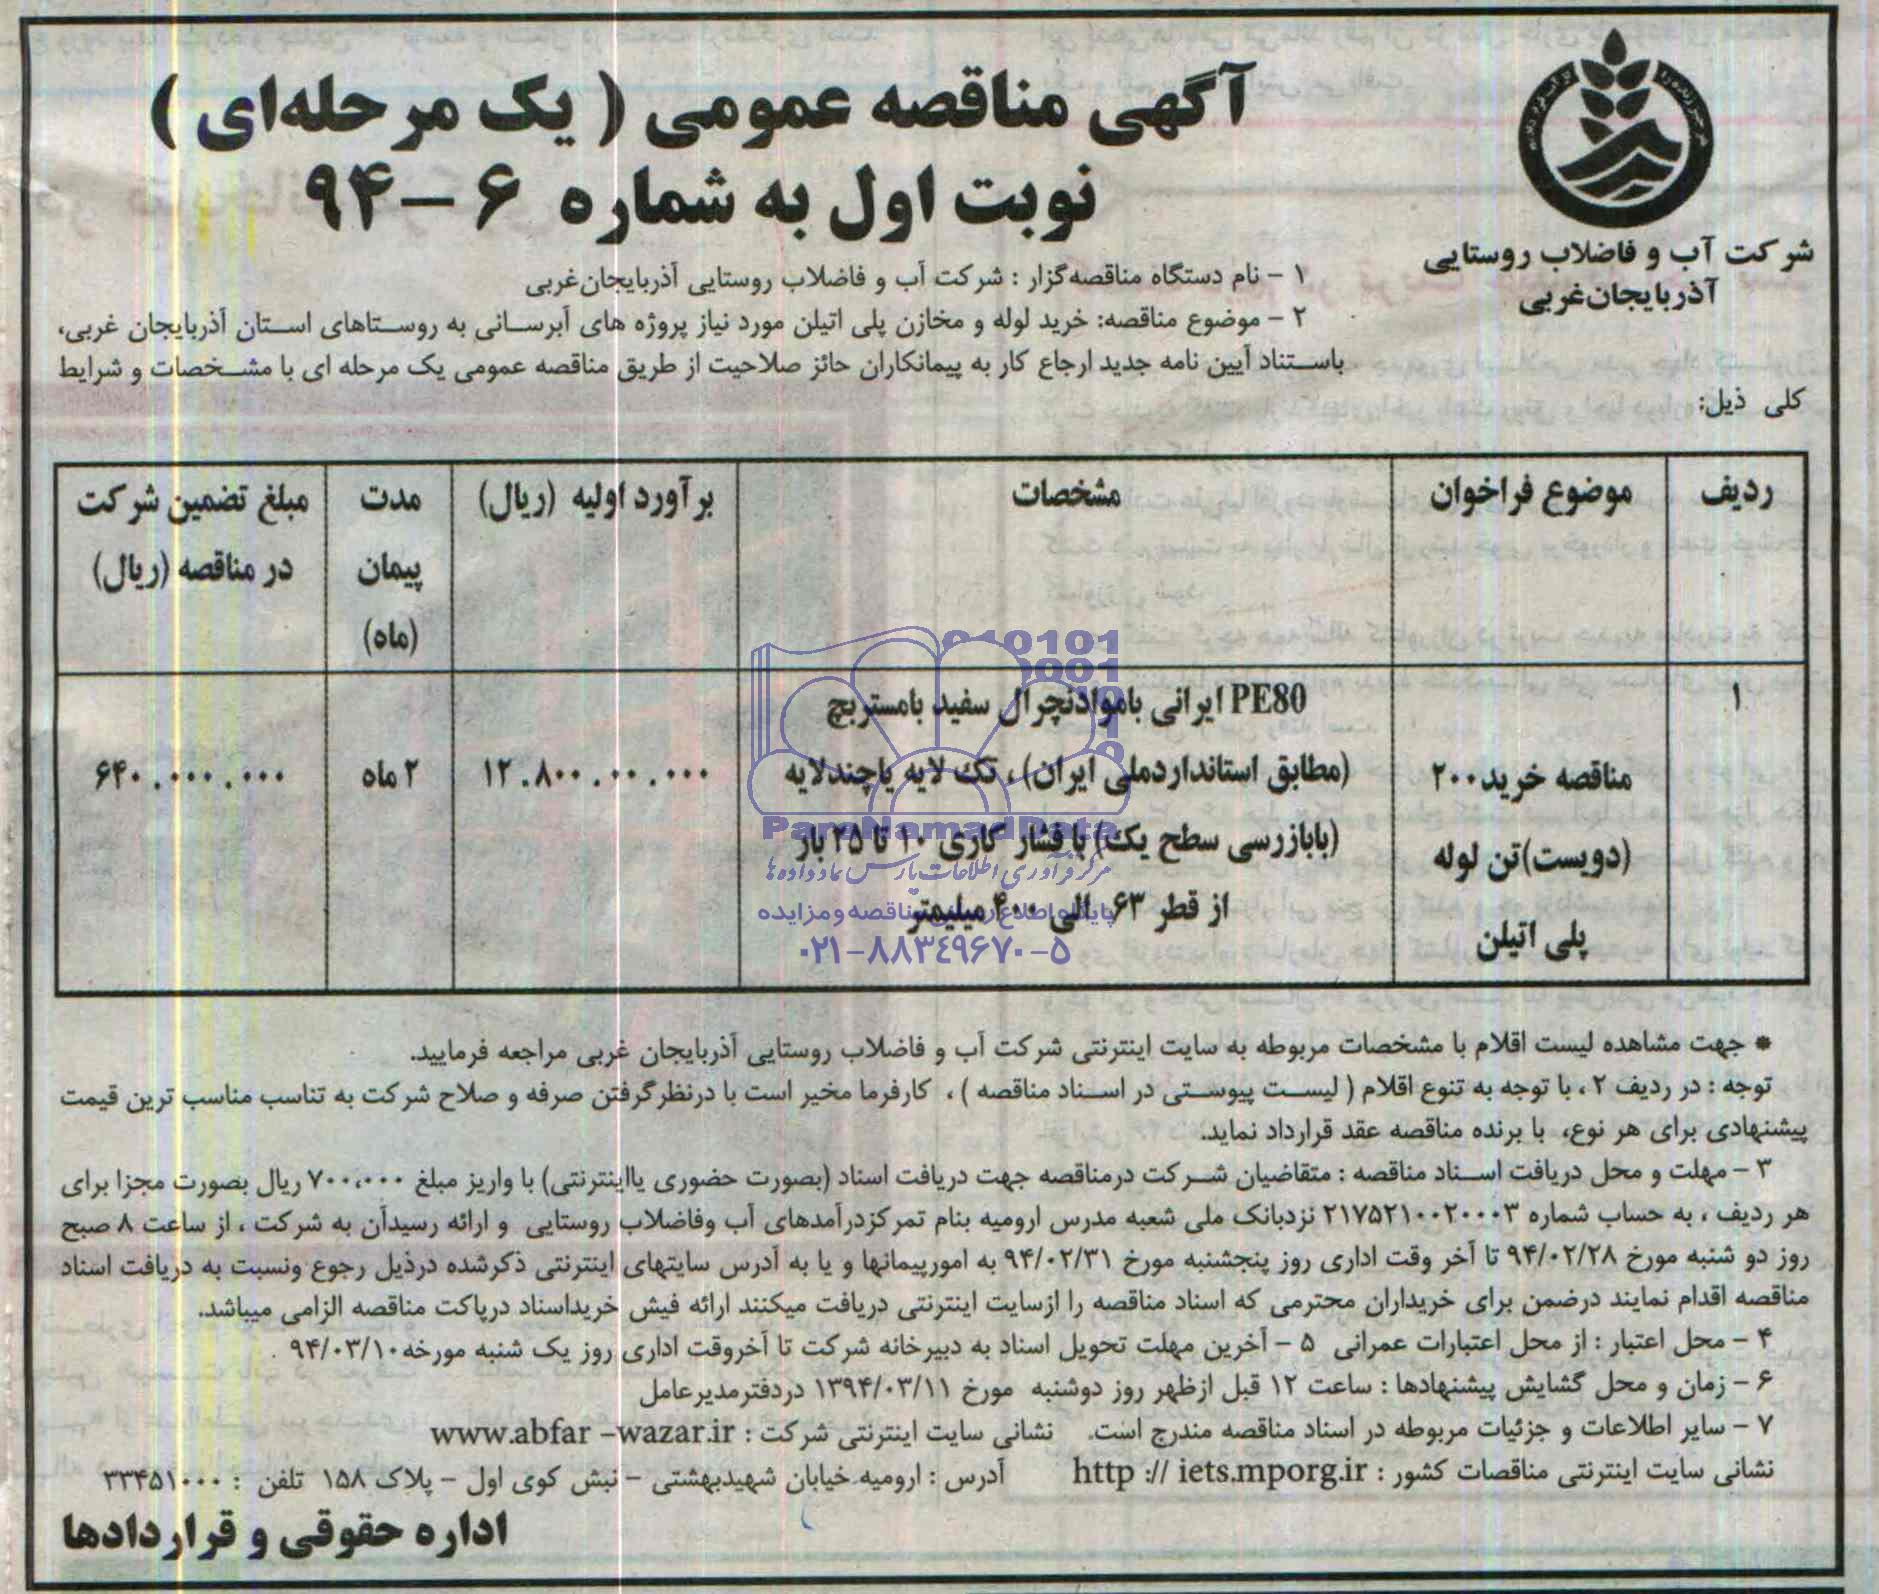 آگهی مناقصه عمومی ( یک مرحله‌ای )
نوبت اول به شماره ۶ – ۹۴
شرکت آب و فاضلاب روستایی
آذربایجان‌غربی
۱ – نام دستگاه مناقصه‌گزار : شرکت آب و فاضلاب روستایی آذربایجان‌غربی
۲ – موضوع مناقصه: خرید لوله و مخازن پلی اتیلن مورد نیاز پروژه های آبرسانی به روستاهای استان آذربایجان غربی،
باستناد آیین نامه جدید ارجاع کار به پیمانکاران حائز صلاحیت از طریق مناقصه عمومی یک مرحله ای با مشخصات و شرایط
کلی ذیل:
ردیف
موضوع فراخوان
مشخصات
برآورد اولیه (ریال)
مدت
پیمان
(ماه)
مبلغ تضمین شرکت
در مناقصه (ریال)
۱
مناقصه خرید ۲۰۰
(دویست)تن لوله
پلی اتیلن
PE80 ایرانی باموادنچرال سفید بامستربچ
(مطابق استانداردملی ایران)، تک لایه یاچندلایه
(بابازرسی سطح یک) بافشار کاری ۱۰ تا ۲۵ بار
از قطر ۶۳ الی ۴۰۰ میلیمتر
۱۲.۸۰۰.۰۰.۰۰۰
۲ ماه
۶۴۰.۰۰۰.۰۰۰
010101
ParsNamadData
مرکز فرآوری اطلاعات پارس نماد داده ها
پایگاه اطلاع رسانی مناقصه و مزایده
۰۲۱-۸۸۳۴۹۶۷۰-۵
* جهت مشاهده لیست اقلام با مشخصات مربوطه به سایت اینترنتی شرکت آب و فاضلاب روستایی آذربایجان غربی مراجعه فرمایید.
توجه : در ردیف ۲ ، با توجه به تنوع اقلام ( لیست پیوستی در اسناد مناقصه ) ، کارفرما مخیر است با درنظرگرفتن صرفه و صلاح شرکت به تناسب مناسب ترین قیمت
پیشنهادی برای هر نوع، با برنده مناقصه عقد قرارداد نماید.
۳ – مهلت و محل دریافت اسناد مناقصه : متقاضیان شرکت درمناقصه جهت دریافت اسناد (بصورت حضوری یااینترنتی) با واریز مبلغ ۷۰۰،۰۰۰ ریال بصورت مجزا برای
هر ردیف ، به حساب شماره ۲۱۷۵۲۱۰۰۲۰۰۰۳ نزدبانک ملی شعبه مدرس ارومیه بنام تمرکزدرآمدهای آب وفاضلاب روستایی و ارائه رسیدآن به شرکت ، از ساعت ۸ صبح
روز دو شنبه مورخ ۹۴/۰۲/۲۸ تا آخر وقت اداری روز پنجشنبه مورخ ۹۴/۰۲/۳۱ به امورپیمانها و یا به آدرس سایتهای اینترنتی ذکرشده درذیل رجوع ونسبت به دریافت اسناد
مناقصه اقدام نمایند درضمن برای خریداران محترمی که اسناد مناقصه را ازسایت اینترنتی دریافت میکنند ارائه فیش خریداسناد درپاکت مناقصه الزامی میباشد.
۴ – محل اعتبار : از محل اعتبارات عمرانی ۵ – آخرین مهلت تحویل اسناد به دبیرخانه شرکت تا آخروقت اداری روز یک شنبه مورخه ۹۴/۰۳/۱۰ .
۶ – زمان و محل گشایش پیشنهادها : ساعت ۱۲ قبل ازظهر روز دوشنبه مورخ ۱۳۹۴/۰۳/۱۱ دردفترمدیرعامل
۷ – سایر اطلاعات و جزئیات مربوطه در اسناد مناقصه مندرج است. نشانی سایت اینترنتی شرکت : www.abfar –wazar.ir
نشانی سایت اینترنتی مناقصات کشور : http :// iets.mporg.ir آدرس : ارومیه خیابان شهیدبهشتی – نبش کوی اول – پلاک ۱۵۸ تلفن : ۳۳۴۵۱۰۰۰
اداره حقوقی و قراردادها